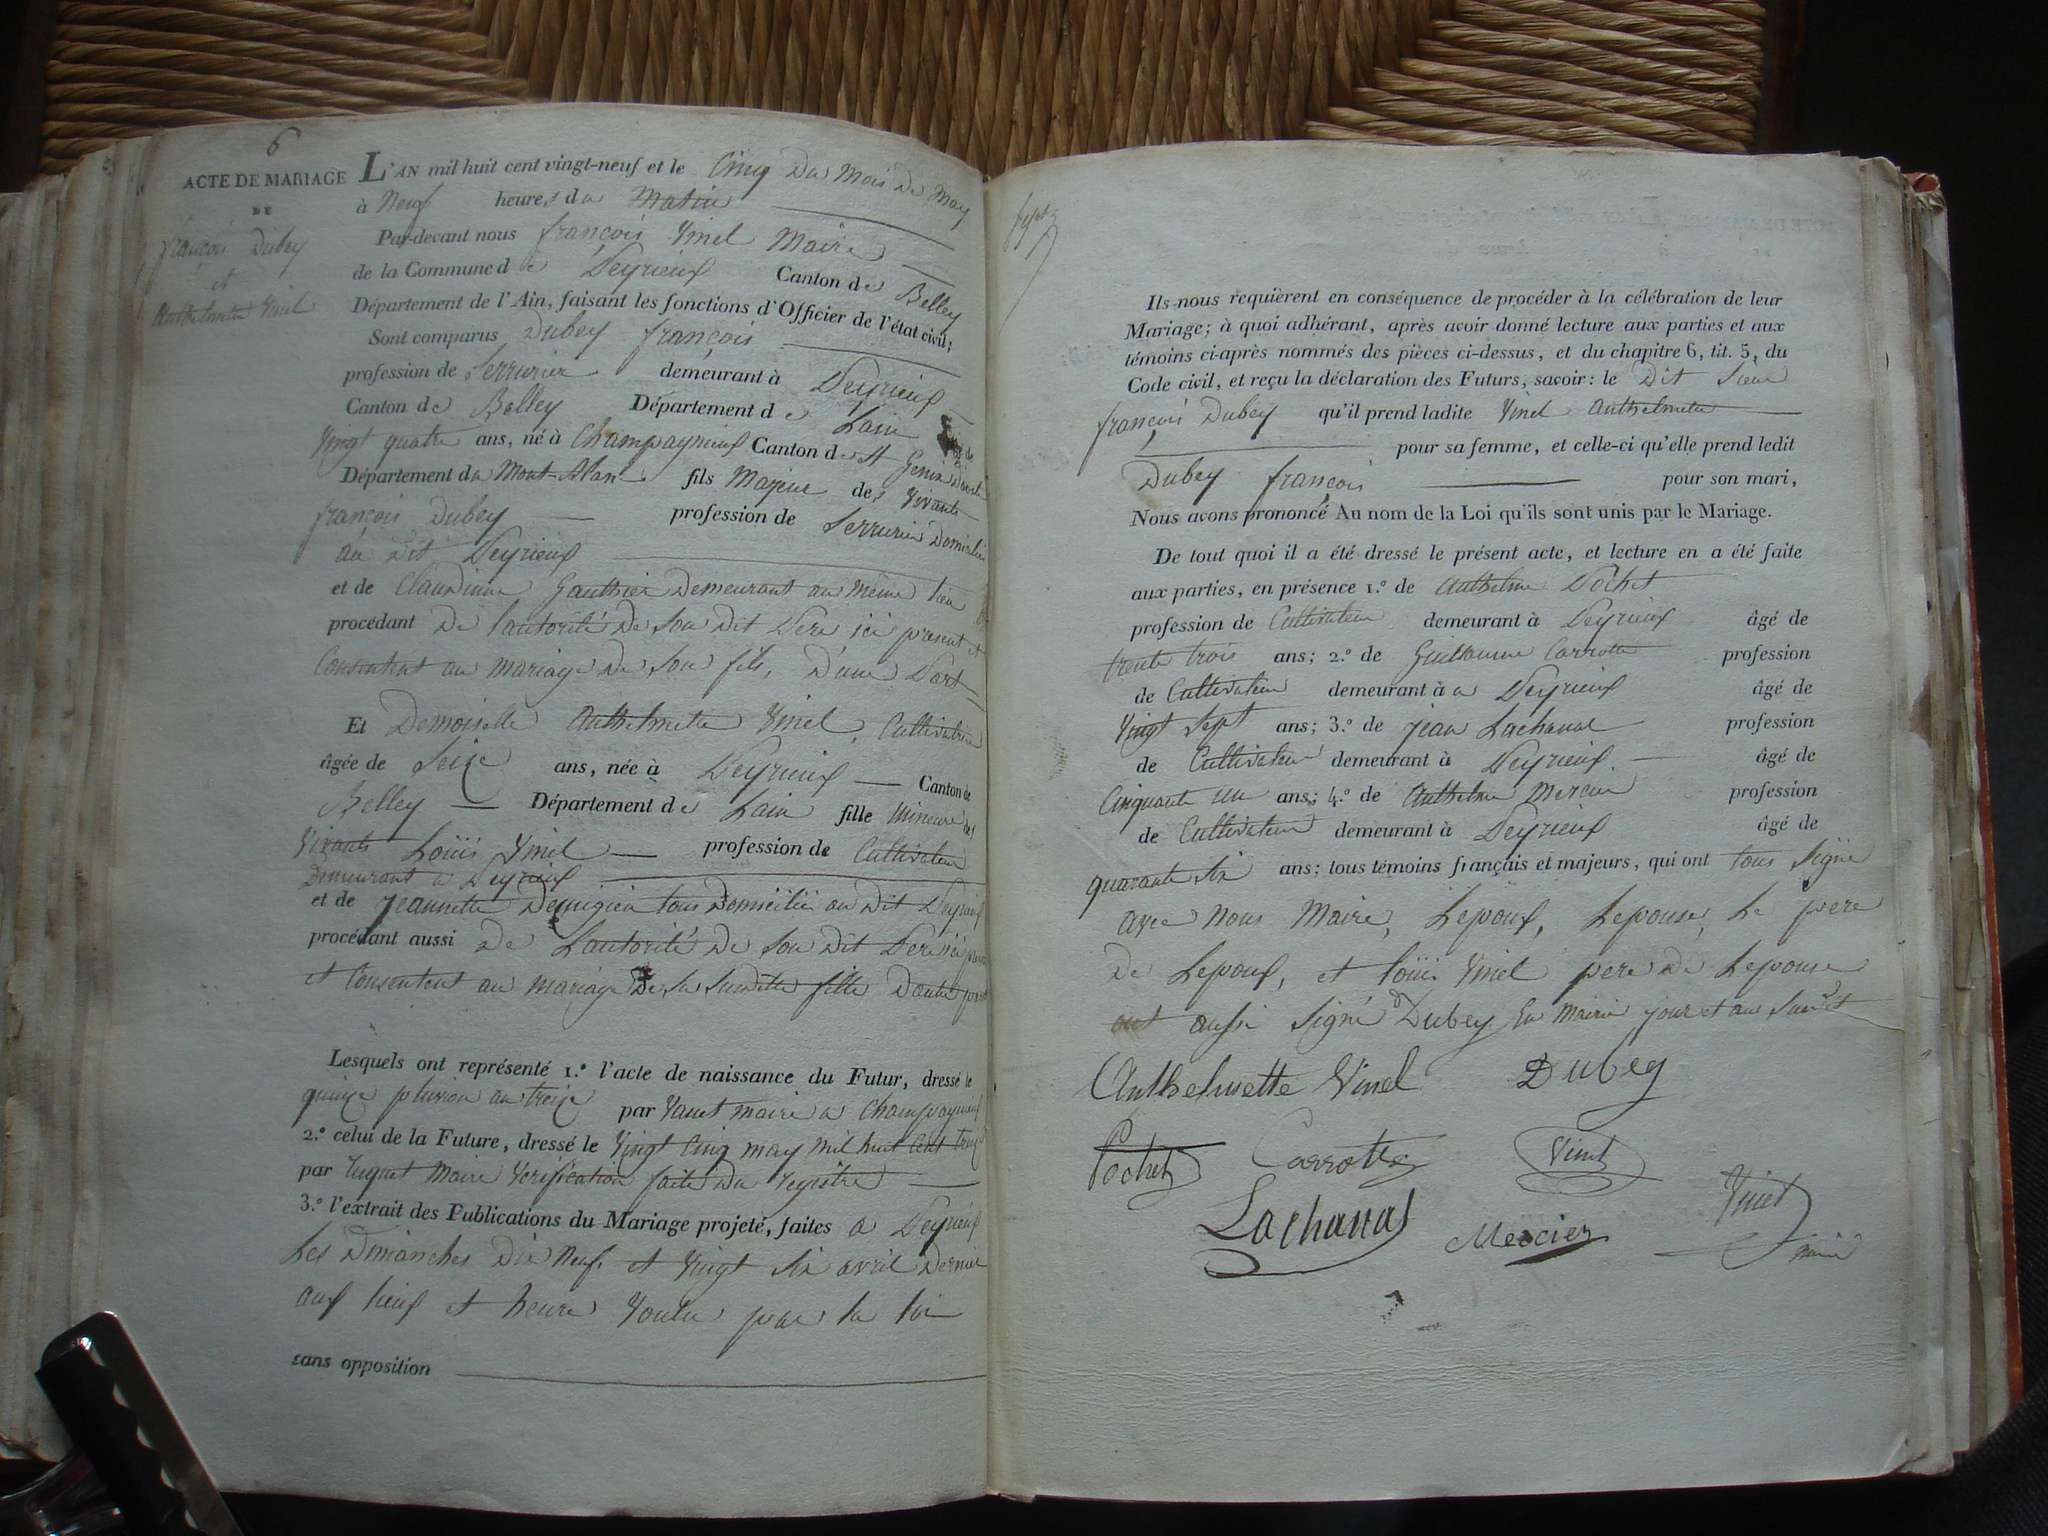 6
ACTE DE MARIAGE
DE
françois Dubey
et
Anthelmette Vinel
L'AN mil huit cent vingt-neuf et le Cinq Du Mois De May
à Neuf heures du Matin
Par-devant nous françois Vinel Maire
de la Commune de Peyrieux Canton de Belley
Département de l'Ain, faisant les fonctions d'Officier de l'état civil;
Sont comparus Dubey françois
profession de Serrurier demeurant à Peyrieux
Canton de Belley Département de Lain
Vingt quatre ans, né à Champagneux Canton de St Genix
Département du Mont-Blanc fils Majeur des Vivants
françois Dubey profession de Serrurier Domicilié
au Dit Peyrieux
et de Claudine Gauthier Demeurant au même lieu
procédant De lautorité De Son Dit Pere ici present et
Consentent au mariage De Son fils, D'une Part
Et Demoiselle Anthelmette Vinel, Cultivatrice
âgée de Seize ans, née à Peyrieux Canton de
Belley Département de Lain fille Mineure des
Vivants Loüis Vinel profession de Cultivateur
Demeurant a Peyrieux
et de Jeannette tous Domicilié au Dit Peyrieux
procédant aussi De Lautorité De Son Dit Pere ici
et Consentent au mariage De Sa Susditte fille Dautre part
Lesquels ont représenté 1.º l'acte de naissance du Futur, dressé le
quinze pluviôse an treize par maire a Champagneux
2.º celui de la Future, dressé le Vingt Cinq may mil huit Cent
par Maire Verification faite Du registre
3.º l'extrait des Publications du Mariage projeté, faites a Peyrieux
Les Dimanches Dix Neuf, et Vingt Six avril Dernier
aux lieux et heure Voulu par la loi
sans opposition
Ils nous requièrent en conséquence de procéder à la célébration de leur
Mariage; à quoi adhérant, après avoir donné lecture aux parties et aux
témoins ci-après nommés des pièces ci-dessus, et du chapitre 6, tit. 5, du
Code civil, et reçu la déclaration des Futurs, savoir: le Dit Sieur
françois Dubey qu'il prend ladite Vinel Anthelmette
pour sa femme, et celle-ci qu'elle prend ledit
Dubey françois pour son mari,
Nous avons prononcé Au nom de la Loi qu'ils sont unis par le Mariage.
De tout quoi il a été dressé le présent acte, et lecture en a été faite
aux parties, en présence 1.º de Anthelme Pochet
profession de Cultivateur demeurant à Peyrieux âgé de
trente trois ans; 2.º de Guillaume Carrotte profession
de Cultivateur demeurant à a Peyrieux âgé de
Vingt Sept ans; 3.º de jean Lachanal profession
de Cultivateur demeurant à Peyrieux âgé de
Cinquante un ans; 4.º de Anthelme Mercier profession
de Cultivateur demeurant à Peyrieux âgé de
quarante Six ans; tous témoins français et majeurs, qui ont tous Signé
avec Nous Maire, Lepoux, Lepouse, Le pere
De Lepoux, et loüis Vinel pere De Lepouse
ont aussi Signé Dubey En Mairie jour et an Susdit
Anthelmette Vinel Dubey
Pochet Carrotte Vinel
Lachanal Mercier Vinel
maire